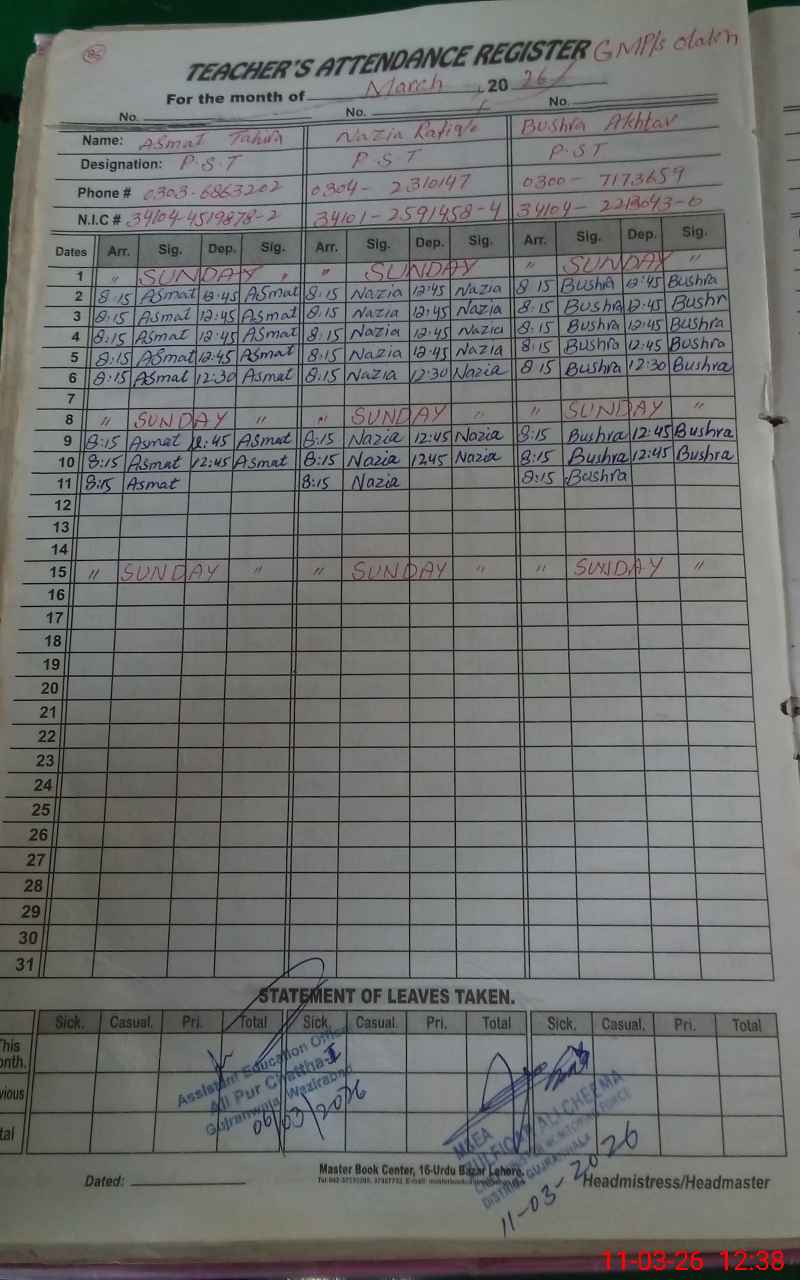 86
TEACHER'S ATTENDANCE REGISTER GMP/s
For the month of March, 2026
No. No. No.
Name: Asmat Tahira Nazia Rafique Bushra Akhtar
Designation: P.S.T P.S.T P.S.T
Phone # 0303-6863202 0304-2310147 0300-7173659
N.I.C # 34104-4519878-2 34101-2591458-4 34104-2213043-0
Dates Arr. Sig. Dep. Sig. Arr. Sig. Dep. Sig. Arr. Sig. Dep. Sig.
1 " SUNDAY " " SUNDAY " SUNDAY "
2 8:15 Asmat 12:45 Asmat 8:15 Nazia 12:45 Nazia 8:15 Bushra 12:45 Bushra
3 8:15 Asmat 12:45 Asmat 8:15 Nazia 12:45 Nazia 8:15 Bushra 12:45 Bushr
4 8:15 Asmat 12:45 Asmat 8:15 Nazia 12:45 Nazia 8:15 Bushra 12:45 Bushra
5 8:15 Asmat 12:45 Asmat 8:15 Nazia 12:45 Nazia 8:15 Bushra 12:45 Bushra
6 8:15 Asmat 12:30 Asmat 8:15 Nazia 12:30 Nazia 8:15 Bushra 12:30 Bushra
7
8 " SUNDAY " " SUNDAY " " SUNDAY "
9 8:15 Asmat 12:45 Asmat 8:15 Nazia 12:45 Nazia 8:15 Bushra 12:45 Bushra
10 8:15 Asmat 12:45 Asmat 8:15 Nazia 1245 Nazia 8:15 Bushra 12:45 Bushra
11 8:15 Asmat 8:15 Nazia 8:15 Bushra
12
13
14
15 " SUNDAY " " SUNDAY " " SUNDAY "
16
17
18
19
20
21
22
23
24
25
26
27
28
29
30
31
STATEMENT OF LEAVES TAKEN.
Sick. Casual. Pri. Total Sick. Casual. Pri. Total Sick. Casual. Pri. Total
This
onth.
vious
tal
Assistant Education Officer
Ali Pur Chattha-I
Gujranwala/Wazirabad
06/03/2026
MEA
ZULFIQAR ALI CHEEMA
DISTRICT GUJRANWALA
11-03-2026
Dated:
Master Book Center, 16-Urdu Bazar Lahore.
Headmistress/Headmaster
11-03-26 12:38